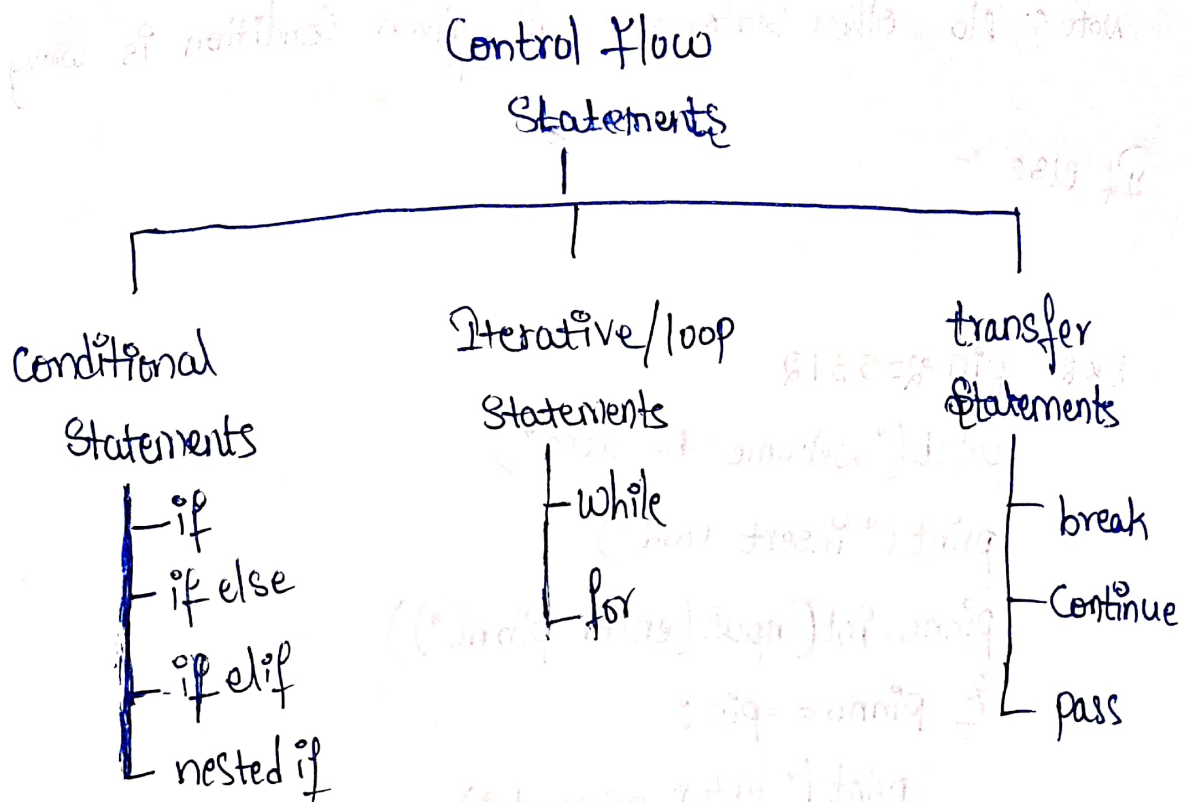 Control flow
Statements
Conditional
Statements
if
if else
if elif
nested if
Iterative/loop
Statements
while
for
transfer
Statements
break
Continue
pass